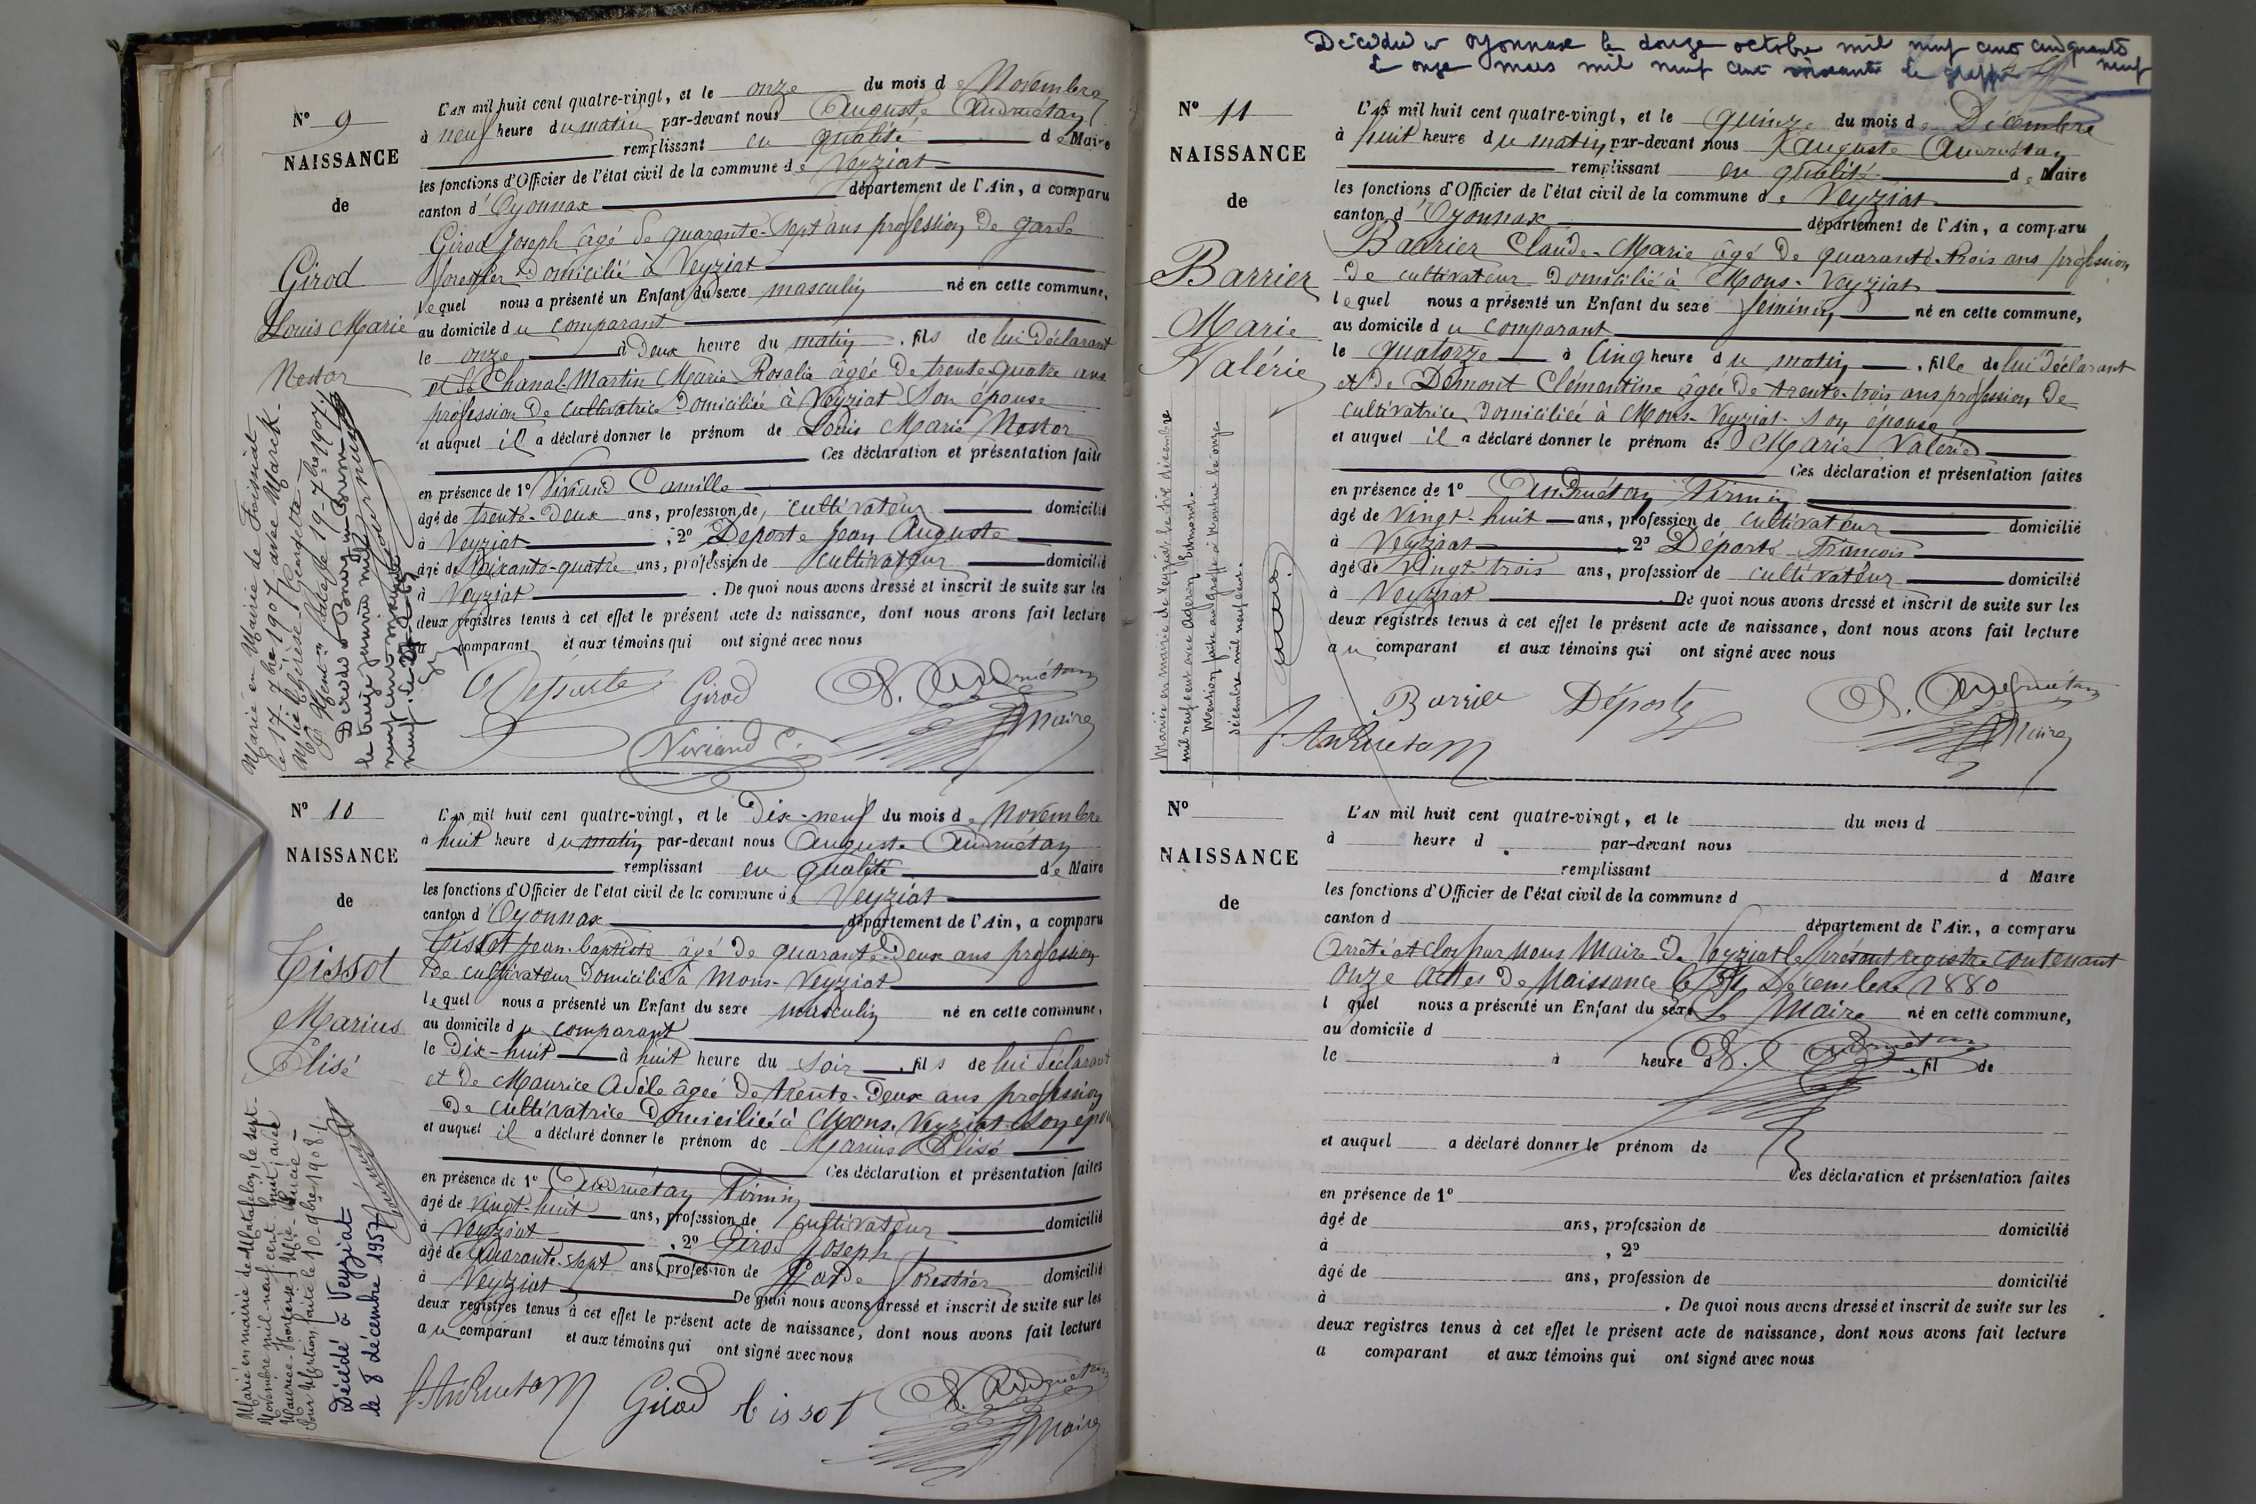 N° 9
NAISSANCE
de
Girod
Louis Marie
Nestor
L'AN mil huit cent quatre-vingt, et le onze du mois de Novembre
à neuf heure du matin par-devant nous Auguste Andruétan
remplissant en qualité de Maire
les fonctions d'Officier de l'état civil de la commune de Veyziat
canton d'Oyonnax département de l'Ain, a comparu
Girod Joseph âgé de quarante-sept ans profession de garde
forestier domicilié à Veyziat
lequel nous a présenté un Enfant du sexe masculin né en cette commune,
au domicile du comparant
le onze à deux heure du matin, fils de lui déclarant
et de Chanal-Martin Marie Rosalie âgée de trente-quatre ans
profession de cultivatrice domiciliée à Veyziat son épouse
et auquel il a déclaré donner le prénom de Louis Marie Nestor
Ces déclaration et présentation faite
en présence de 1° Viviand Camille
âgé de trente-deux ans, profession de cultivateur domicilié
à Veyziat, 2° Deporte Jean Auguste
âgé de soixante-quatre ans, profession de cultivateur domicilié
à Veyziat. De quoi nous avons dressé et inscrit de suite sur les
deux registres tenus à cet effet le présent acte de naissance, dont nous avons fait lecture
au comparant et aux témoins qui ont signé avec nous
Déporte Girod A. Andruétan
Viviand C. Maire
Marié en Mairie de
le 17-7bre-1907 avec Marck
Mie Thérèse Gentette
19-7bre 1907
Décédé à Bourg
le treize janvier mil
neuf cent
neuf
N° 10
NAISSANCE
de
Tissot
Marius
Elisé
L'AN mil huit cent quatre-vingt, et le Dix-neuf du mois de Novembre
à huit heure du matin par-devant nous Auguste Andruétan
remplissant en qualité de Maire
les fonctions d'Officier de l'état civil de la commune de Veyziat
canton d'Oyonnax département de l'Ain, a comparu
Tissot Jean-baptiste âgé de quarante-deux ans profession
de cultivateur domicilié à Mons-Veyziat
lequel nous a présenté un Enfant du sexe masculin né en cette commune,
au domicile du comparant
le Dix-huit à huit heure du soir, fils de lui déclarant
et de Maurice Adèle âgée de trente-deux ans profession
de cultivatrice domiciliée à Mons-Veyziat son épouse
et auquel il a déclaré donner le prénom de Marius Elisé
Ces déclaration et présentation faites
en présence de 1° Andruétan Firmin
âgé de vingt-huit ans, profession de cultivateur domicilié
à Veyziat, 2° Girod Joseph
âgé de quarante-sept ans profession de Garde forestier domicilié
à Veyziat De quoi nous avons dressé et inscrit de suite sur les
deux registres tenus à cet effet le présent acte de naissance, dont nous avons fait lecture
au comparant et aux témoins qui ont signé avec nous
F. Andruétan Girod tissot A. Andruétan
Maire
Marié en mairie de Matafelon, le sept
Novembre mil-neuf-cent huit, avec
Maurice Hortense Mie-Lucie
Pour Mention faite le 10 9bre 1908
Décédé à Veyziat
le 8 décembre 1957
Décédée à Oyonnax le douze octobre mil neuf cent cinquante
neuf
N° 11
NAISSANCE
de
Barrier
Marie
Valérie
L'AN mil huit cent quatre-vingt, et le quinze du mois de Décembre
à huit heure du matin par-devant nous Auguste Andruétan
remplissant en qualité de Maire
les fonctions d'Officier de l'état civil de la commune de Veyziat
canton d'Oyonnax département de l'Ain, a comparu
Barrier Claude-Marie âgé de quarante-trois ans profession
de cultivateur domicilié à Mons-Veyziat
lequel nous a présenté un Enfant du sexe féminin né en cette commune,
au domicile du comparant
le quatorze à Cinq heure du matin, fille de lui déclarant
et de Démont Clémentine âgée de trente-trois ans profession de
cultivatrice domiciliée à Mons-Veyziat son épouse
et auquel il a déclaré donner le prénom de Marie Valérie
Ces déclaration et présentation faites
en présence de 1° Andruétan Firmin
âgé de vingt-huit ans, profession de cultivateur domicilié
à Veyziat 2° Déporte François
âgé de vingt-trois ans, profession de cultivateur domicilié
à Veyziat De quoi nous avons dressé et inscrit de suite sur les
deux registres tenus à cet effet le présent acte de naissance, dont nous avons fait lecture
au comparant et aux témoins qui ont signé avec nous
Barrier Déporte A. Andruétan
F. Andruétan Maire
Mariée en mairie de Veyziat le dix décembre
mil neuf cent
Mention faite au greffe de Nantua le onze
décembre mil neuf cent
N°
NAISSANCE
de
L'AN mil huit cent quatre-vingt, et le du mois d
à heure d par-devant nous
remplissant d Maire
les fonctions d'Officier de l'état civil de la commune d
canton d département de l'Ain, a comparu
Arrêté et clos par nous Maire de Veyziat le présent registre contenant
onze actes de Naissance le 31 Décembre 1880
l quel nous a présenté un Enfant du sexe né en cette commune,
Le Maire
au domicile d
le à heure d , fil de
A. Andruétan
et auquel a déclaré donner le prénom de
Ces déclaration et présentation faites
en présence de 1°
âgé de ans, profession de domicilié
à , 2°
âgé de ans, profession de domicilié
à . De quoi nous avons dressé et inscrit de suite sur les
deux registres tenus à cet effet le présent acte de naissance, dont nous avons fait lecture
a comparant et aux témoins qui ont signé avec nous